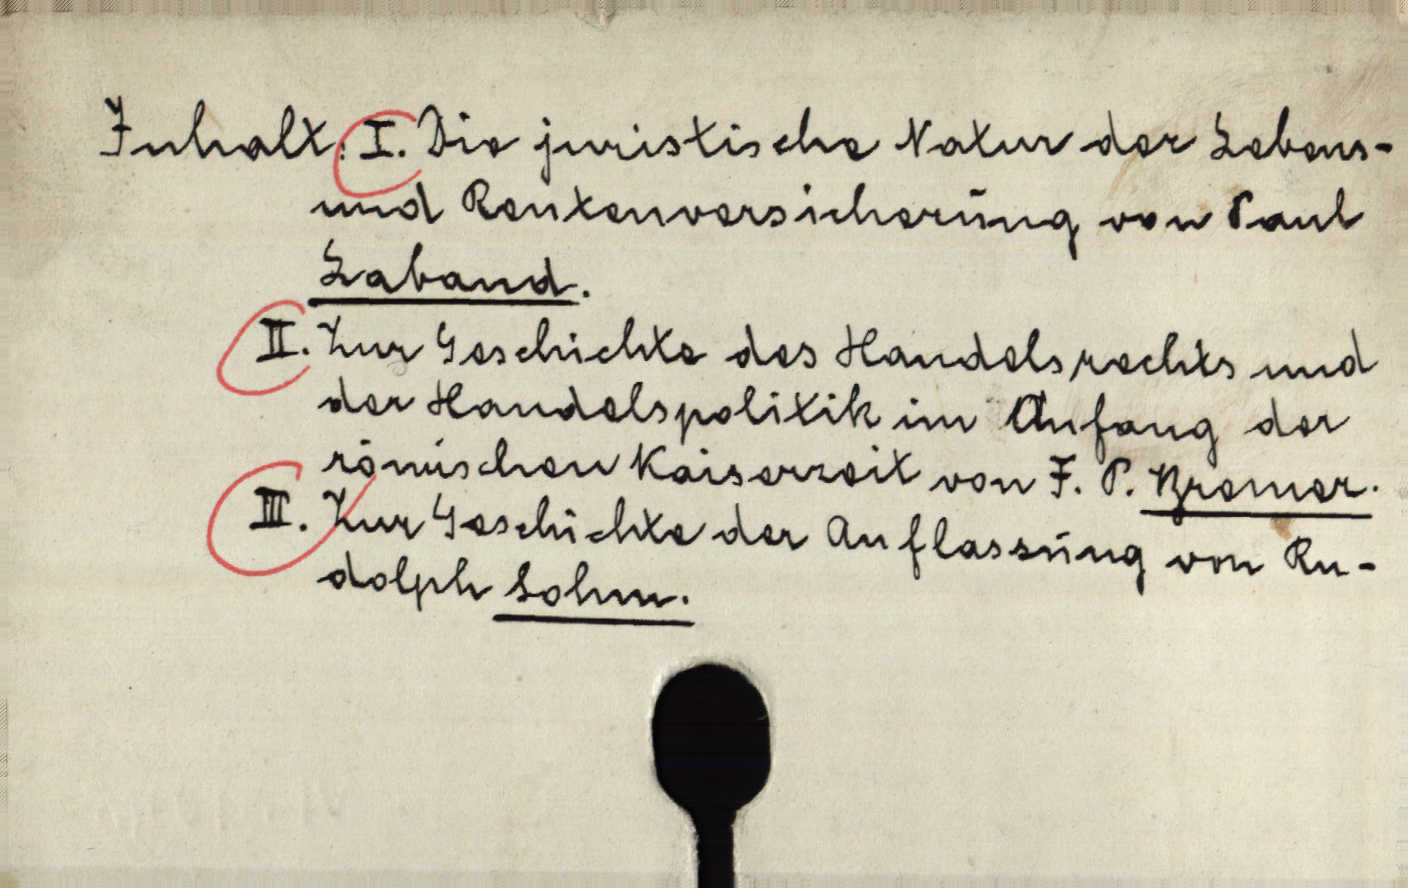 Inhalt: I. Die juristische Natur der Lebens-
und Rentenversicherung von Paul
Laband.
II. Zur Geschichte des Handelsrechts und
der Handelspolitik im Anfang der
römischen Kaiserzeit von F. P. Bremer.
III. Zur Geschichte der Auflassung von Ru-
dolph Sohm.